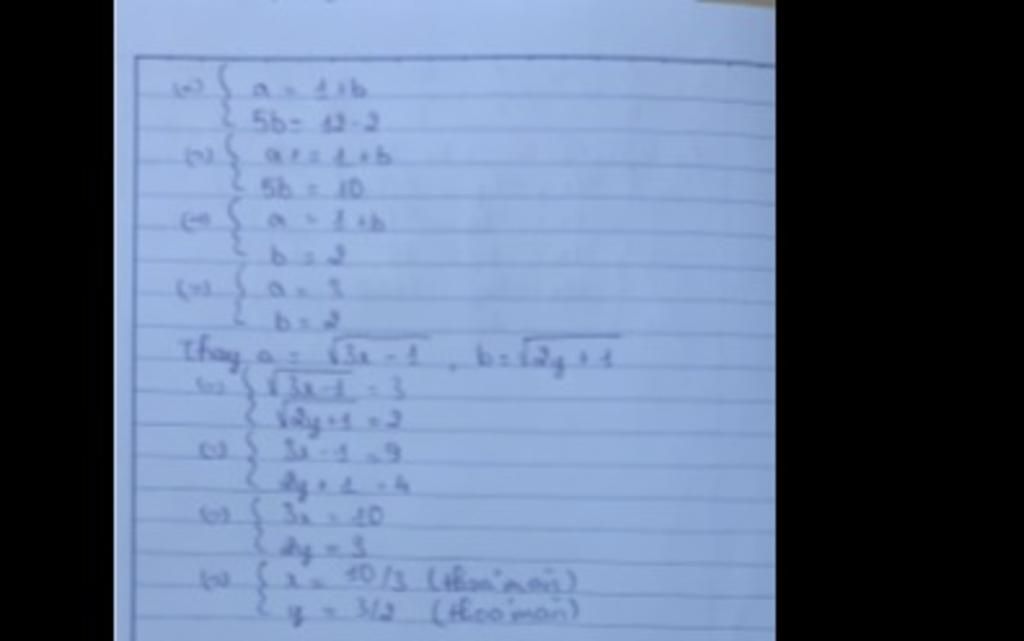 (=) { a = 1+b
5b = 12-2
(=) { a + = 1+b
5b = 10
(=) { a = 1+b
b = 2
(=) { a = 3
b = 2
Thay a = √3x-1 , b = √2y+1
(=) { √3x-1 = 3
√2y+1 = 2
(=) { 3x-1 = 9
2y+1 = 4
(=) { 3x = 10
2y = 3
(=) { x = 10/3 (thoả mãn)
y = 3/2 (thoả mãn)